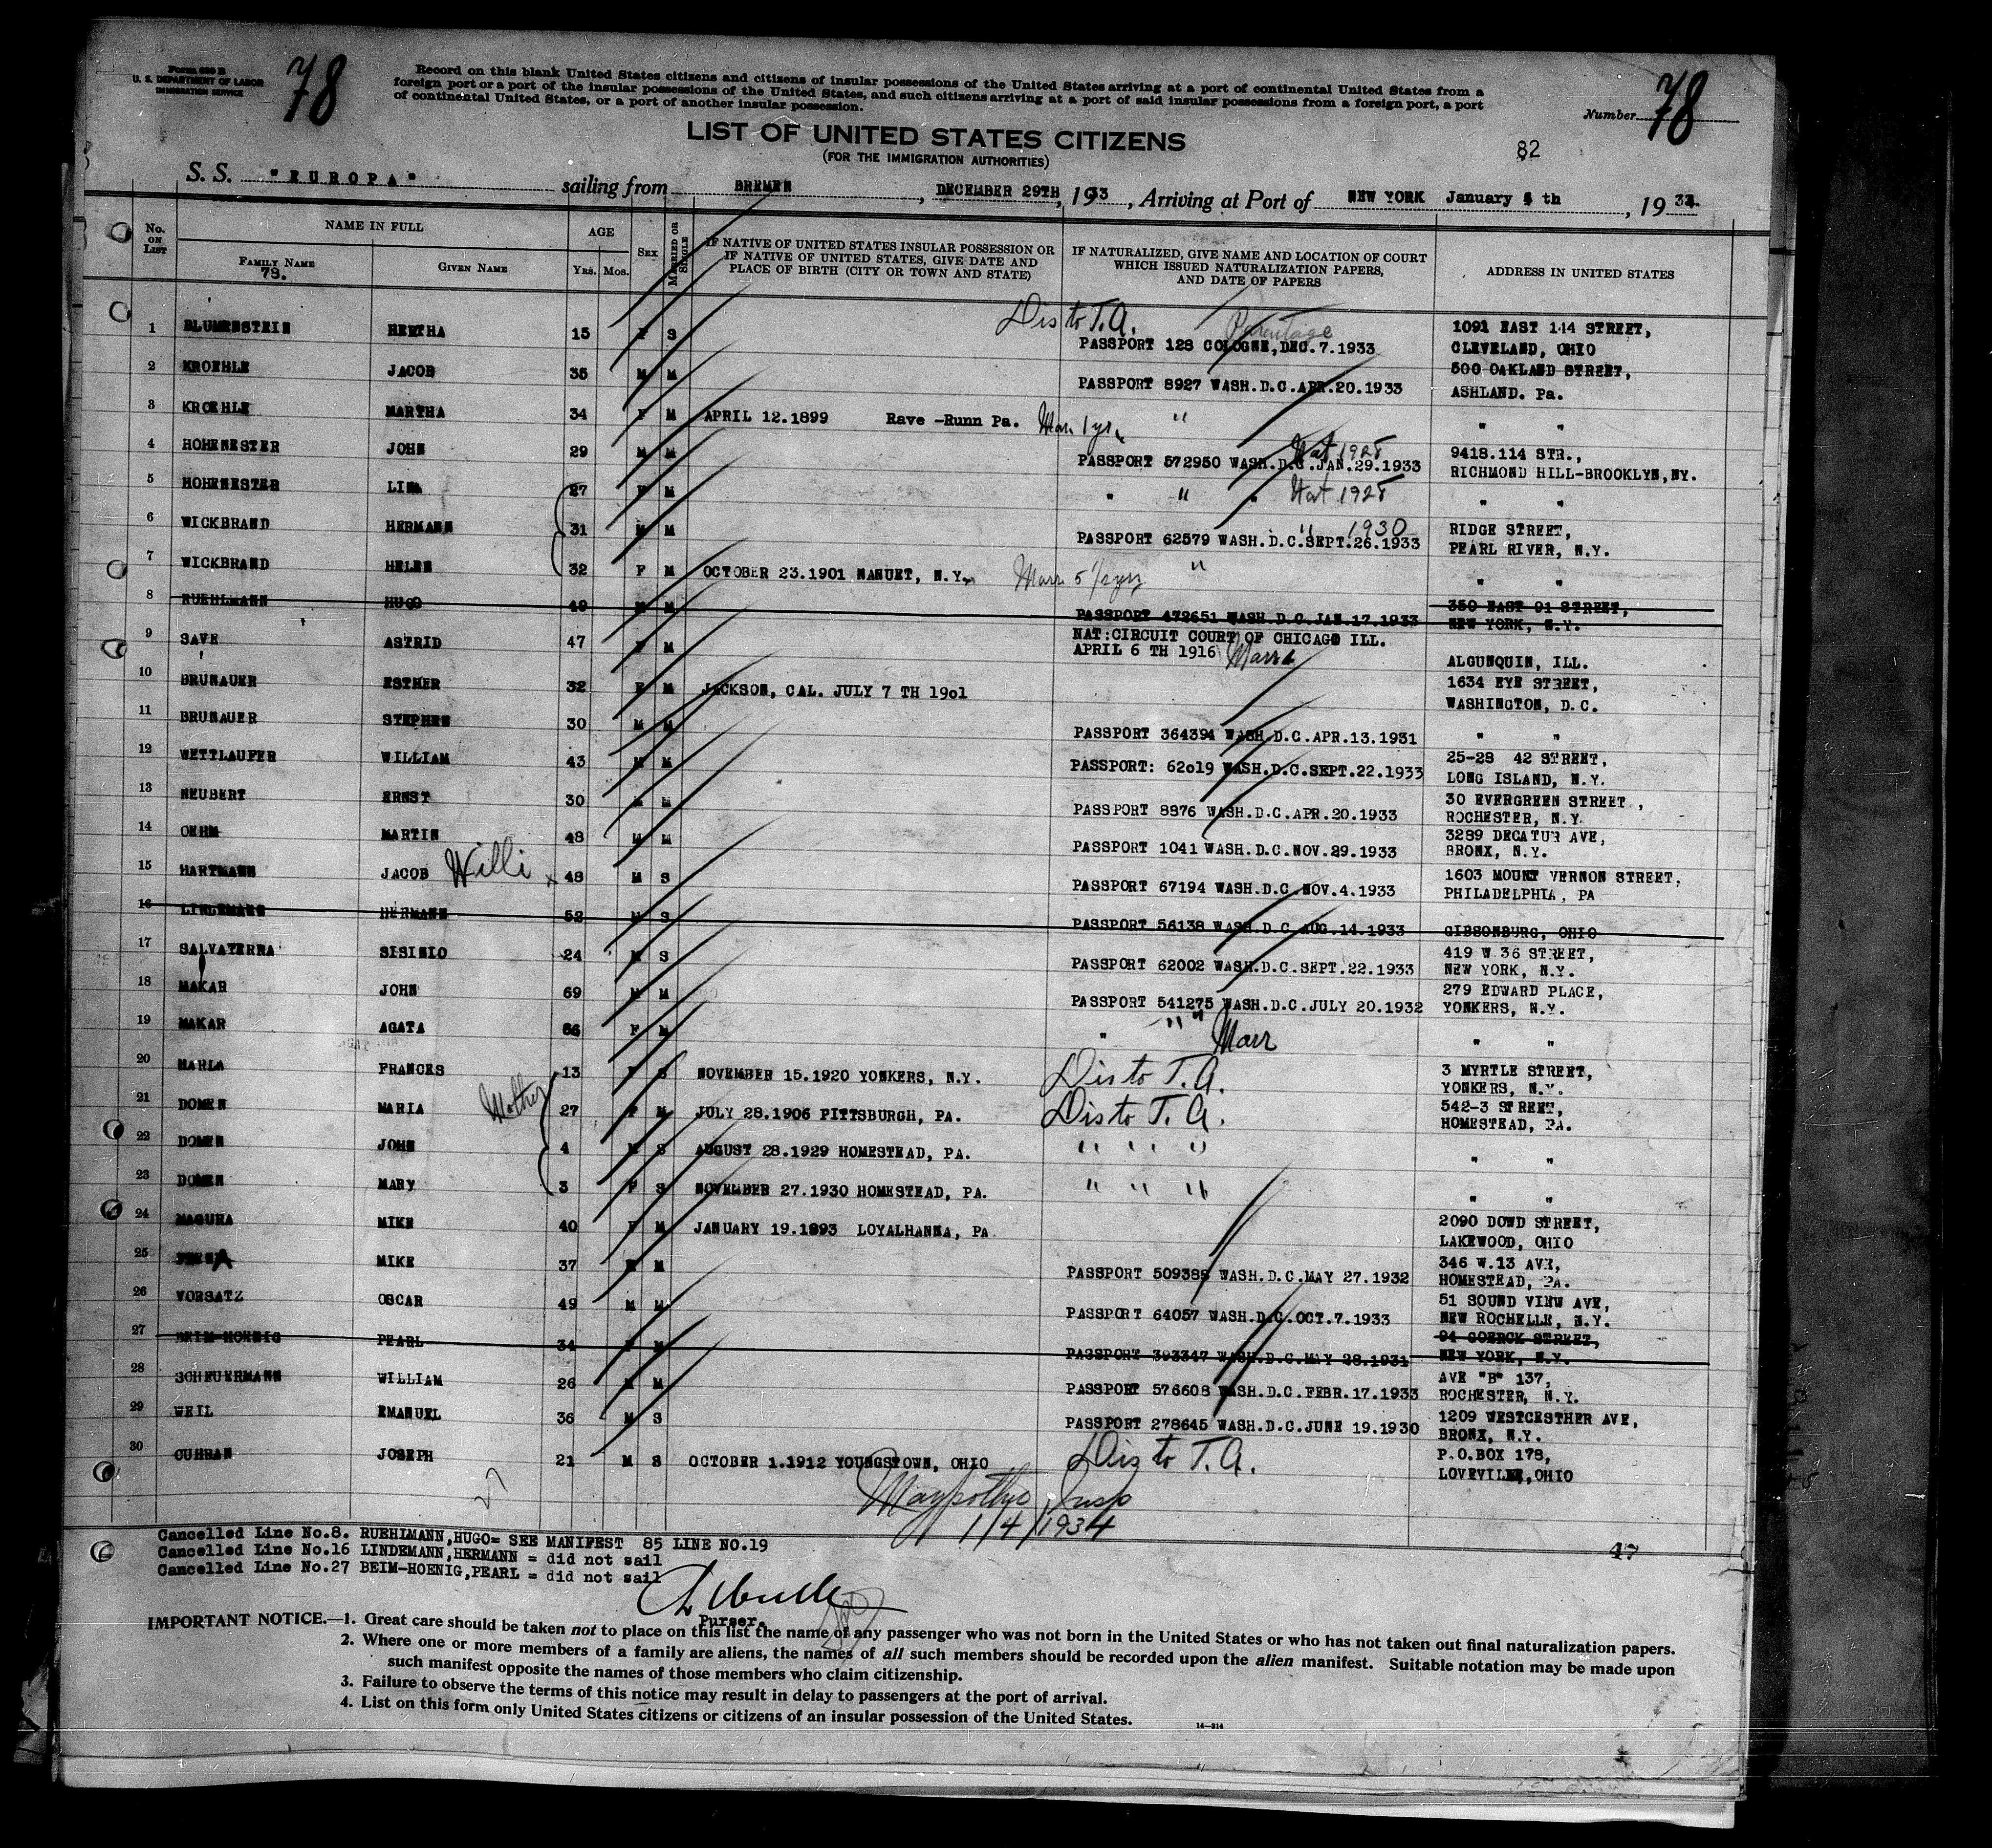 Form 630 B
U. S. DEPARTMENT OF LABOR
IMMIGRATION SERVICE
78
Record on this blank United States citizens and citizens of insular possessions of the United States arriving at a port of continental United States from a
foreign port or a port of the insular possessions of the United States, and such citizens arriving at a port of said insular possessions from a foreign port, a port
of continental United States, or a port of another insular possession.
Number 78
LIST OF UNITED STATES CITIZENS
(FOR THE IMMIGRATION AUTHORITIES)
82
S. S. "EUROPA" sailing from BREMEN, DECEMBER 29TH, 1933, Arriving at Port of NEW YORK January th, 1934
No. ON LIST
NAME IN FULL
FAMILY NAME
78.
GIVEN NAME
AGE
YRS. MOS.
SEX
MARRIED OR SINGLE
IF NATIVE OF UNITED STATES INSULAR POSSESSION OR
IF NATIVE OF UNITED STATES, GIVE DATE AND
PLACE OF BIRTH (CITY OR TOWN AND STATE)
IF NATURALIZED, GIVE NAME AND LOCATION OF COURT
WHICH ISSUED NATURALIZATION PAPERS,
AND DATE OF PAPERS
ADDRESS IN UNITED STATES
Dis to T.A. Parentage
1 BLUMENSTEIN HERTHA 15 F S PASSPORT 128 COLOGNE,DEC.7.1933 1091 EAST 114 STREET,
CLEVELAND, OHIO
2 KROEHLE JACOB 35 M M PASSPORT 8927 WASH.D.C.APR.20.1933 500 OAKLAND STREET,
ASHLAND. Pa.
3 KROEHLE MARTHA 34 F M APRIL 12.1899 Rave -Runn Pa. Marr. 1 yr. " " "
4 HOHENESTER JOHN 29 M M Nat 1928 PASSPORT 572950 WASH.D.C.JAN.29.1933 9418.114 STR.,
RICHMOND HILL-BROOKLYN,NY.
5 HOHENESTER LINA 27 F M " " " Nat 1928 " "
6 WICKBRAND HERMANN 31 M M " 1930 PASSPORT 62579 WASH.D.C.SEPT.26.1933 RIDGE STREET,
PEARL RIVER, N.Y.
7 WICKBRAND HELEN 32 F M OCTOBER 23.1901 NANUET, N.Y. Marr 5 1/2 yrs " " "
8 RUEHLMANN HUGO 49 M M PASSPORT 472651 WASH.D.C.JAN.17.1933 350 EAST 91 STREET,
NEW YORK, N.Y.
9 SAVE ASTRID 47 F M NAT:CIRCUIT COURT OF CHICAGO ILL.
APRIL 6 TH 1916 Marr ALGUNQUIN, ILL.
10 BRUNAUER ESTHER 32 F M JACKSON, CAL. JULY 7 TH 19o1 1634 EYE STREET,
WASHINGTON, D.C.
11 BRUNAUER STEPHEN 30 M M PASSPORT 364394 WASH.D.C.APR.13.1931 " "
12 WETTLAUFER WILLIAM 43 M M PASSPORT: 62o19 WASH.D.C.SEPT.22.1933 25-28 42 STREET,
LONG ISLAND, N.Y.
13 NEUBERT ERNST 30 M M PASSPORT 8876 WASH.D.C.APR.20.1933 30 EVERGREEN STREET,
ROCHESTER, N.Y.
14 OEHM MARTIN 48 M M PASSPORT 1041 WASH.D.C.NOV.29.1933 3289 DECATUR AVE,
BRONX, N.Y.
15 HARTMANN JACOB Willi x 48 M S PASSPORT 67194 WASH.D.C.NOV.4.1933 1603 MOUNT VERNON STREET,
PHILADELPHIA, PA
16 LINDEMANN HERMANN 52 M S PASSPORT 56138 WASH.D.C.AUG.14.1933 GIBSONBURG, OHIO
17 SALVATERRA SISINIO 24 M S PASSPORT 62002 WASH.D.C.SEPT.22.1933 419 W 36 STREET,
NEW YORK, N.Y.
18 MAKAR JOHN 69 M M PASSPORT 541275 WASH.D.C.JULY 20.1932 279 EDWARD PLACE,
YONKERS, N.Y.
19 MAKAR AGATA 66 F M " " " Marr " "
20 HARLA FRANCES 13 F S NOVEMBER 15.1920 YONKERS, N.Y. Dis to T.A. 3 MYRTLE STREET,
YONKERS, N.Y.
21 DOMEN MARIA Mother 27 F M JULY 28.1906 PITTSBURGH, PA. Dis to T.A. 542-3 STREET,
HOMESTEAD, PA.
22 DOMEN JOHN 4 M S AUGUST 28.1929 HOMESTEAD, PA. " " " " "
23 DOMEN MARY 3 F S NOVEMBER 27.1930 HOMESTEAD, PA. " " " " "
24 MAGURA MIKE 40 F M JANUARY 19.1893 LOYALHANNA, PA 2090 DOWD STREET,
LAKEWOOD, OHIO
25 MIKE 37 M M PASSPORT 509388 WASH.D.C.MAY 27.1932 346 W.13 AVE,
HOMESTEAD, PA.
26 VORSATZ OSCAR 49 M M PASSPORT 64057 WASH.D.C.OCT.7.1933 51 SOUND VIEW AVE,
NEW ROCHELLE, N.Y.
27 BEIM-HOENIG PEARL 34 F M PASSPORT 393347 WASH.D.C.MAY 28.1931 94 GOERCK STREET,
NEW YORK, N.Y.
28 SCHEUERMANN WILLIAM 26 M M PASSPORT 576608 WASH.D.C.FEBR.17.1933 AVE "B" 137,
ROCHESTER, N.Y.
29 WEIL EMANUEL 36 M S PASSPORT 278645 WASH.D.C.JUNE 19.1930 1209 WESTCESTHER AVE,
BRONX, N.Y.
30 CUHRAN JOSEPH 21 M S OCTOBER 1.1912 YOUNGSTOWN, OHIO Dis to T.A. P.O.BOX 178,
LOVEVILLE,OHIO
27
Insp
1/4/1934
Cancelled Line No.8. RUEHLMANN,HUGO= SEE MANIFEST 85 LINE NO.19
Cancelled Line No.16 LINDEMANN,HERMANN = did not sail
Cancelled Line No.27 BEIM-HOENIG,PEARL = did not sail
47
Purser.
IMPORTANT NOTICE.—1. Great care should be taken not to place on this list the name of any passenger who was not born in the United States or who has not taken out final naturalization papers.
2. Where one or more members of a family are aliens, the names of all such members should be recorded upon the alien manifest. Suitable notation may be made upon
such manifest opposite the names of those members who claim citizenship.
3. Failure to observe the terms of this notice may result in delay to passengers at the port of arrival.
4. List on this form only United States citizens or citizens of an insular possession of the United States.
14—214